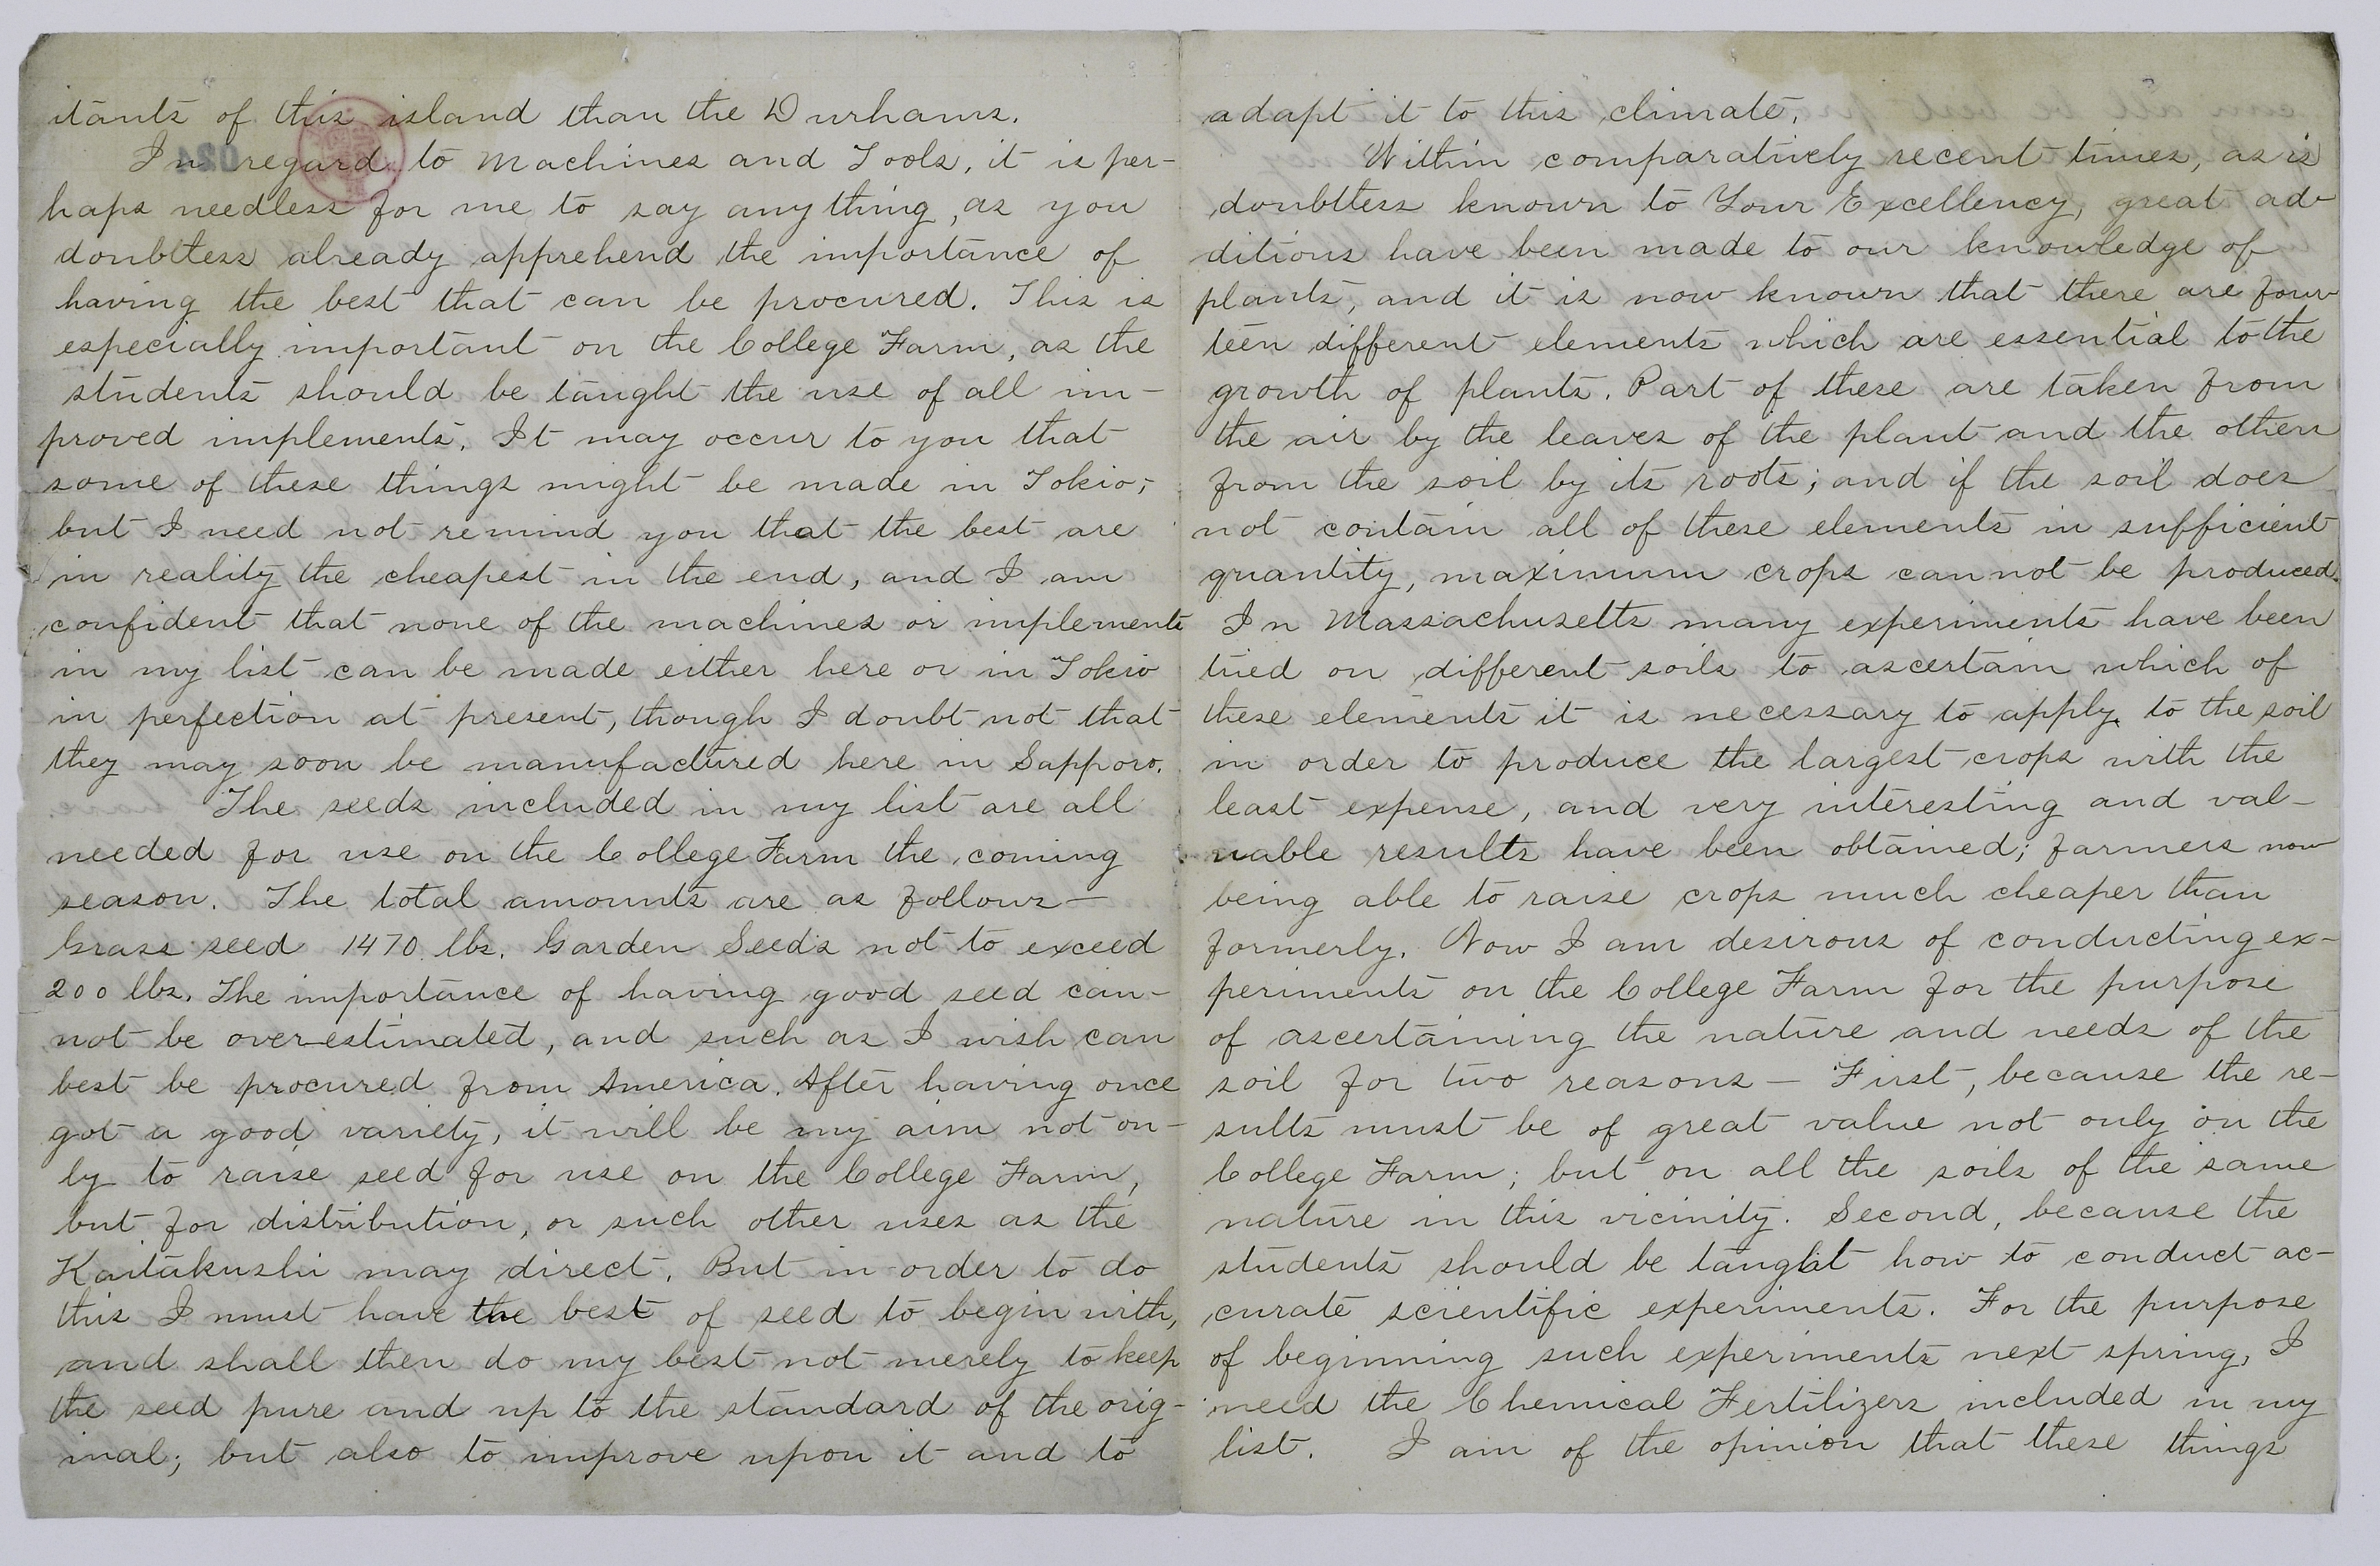 itants of this island than the Durhams.
In regard to Machines and Tools, it is per-
haps needless for me to say anything, as you
doubtless already apprehend the importance of
having the best that can be procured. This is
especially important on the College Farm, as the
students should be taught the use of all im-
proved implements. It may occur to you that
some of these things might be made in Tokio;
but I need not remind you that the best are
in reality the cheapest in the end, and I am
confident that none of the machines or implements
in my list can be made either here or in Tokio
in perfection at present, though I doubt not that
they may soon be manufactured here in Sapporo.
The seeds included in my list are all
needed for use on the College Farm the coming
season. The total amounts are as follows—
Grass seed 1470 lbs. Garden Seeds not to exceed
200 lbs. The importance of having good seed can-
not be overestimated, and such as I wish can
best be procured from America. After having once
got a good variety, it will be my aim not on-
ly to raise seed for use on the College Farm,
but for distribution, or such other uses as the
Kaitakushi may direct. But in order to do
this I must have the best of seed to begin with,
and shall then do my best not merely to keep
the seed pure and up to the standard of the orig-
inal; but also to improve upon it and to
adapt it to this climate.
Within comparatively recent times, as is
doubtless known to Your Excellency, great ad-
ditions have been made to our knowledge of
plants, and it is now known that there are four-
teen different elements which are essential to the
growth of plants. Part of these are taken from
the air by the leaves of the plant and the others
from the soil by its roots; and if the soil does
not contain all of these elements in sufficient
quantity, maximum crops cannot be produced.
In Massachusetts many experiments have been
tried on different soils to ascertain which of
these elements it is necessary to apply to the soil
in order to produce the largest crops with the
least expense, and very interesting and val-
uable results have been obtained; farmers now
being able to raise crops much cheaper than
formerly. Now I am desirous of conducting ex-
periments on the College Farm for the purpose
of ascertaining the nature and needs of the
soil for two reasons — First, because the re-
sults must be of great value not only on the
College Farm; but on all the soils of the same
nature in this vicinity. Second, because the
students should be taught how to conduct ac-
curate scientific experiments. For the purpose
of beginning such experiments next spring, I
need the Chemical Fertilizers included in my
list. I am of the opinion that these things